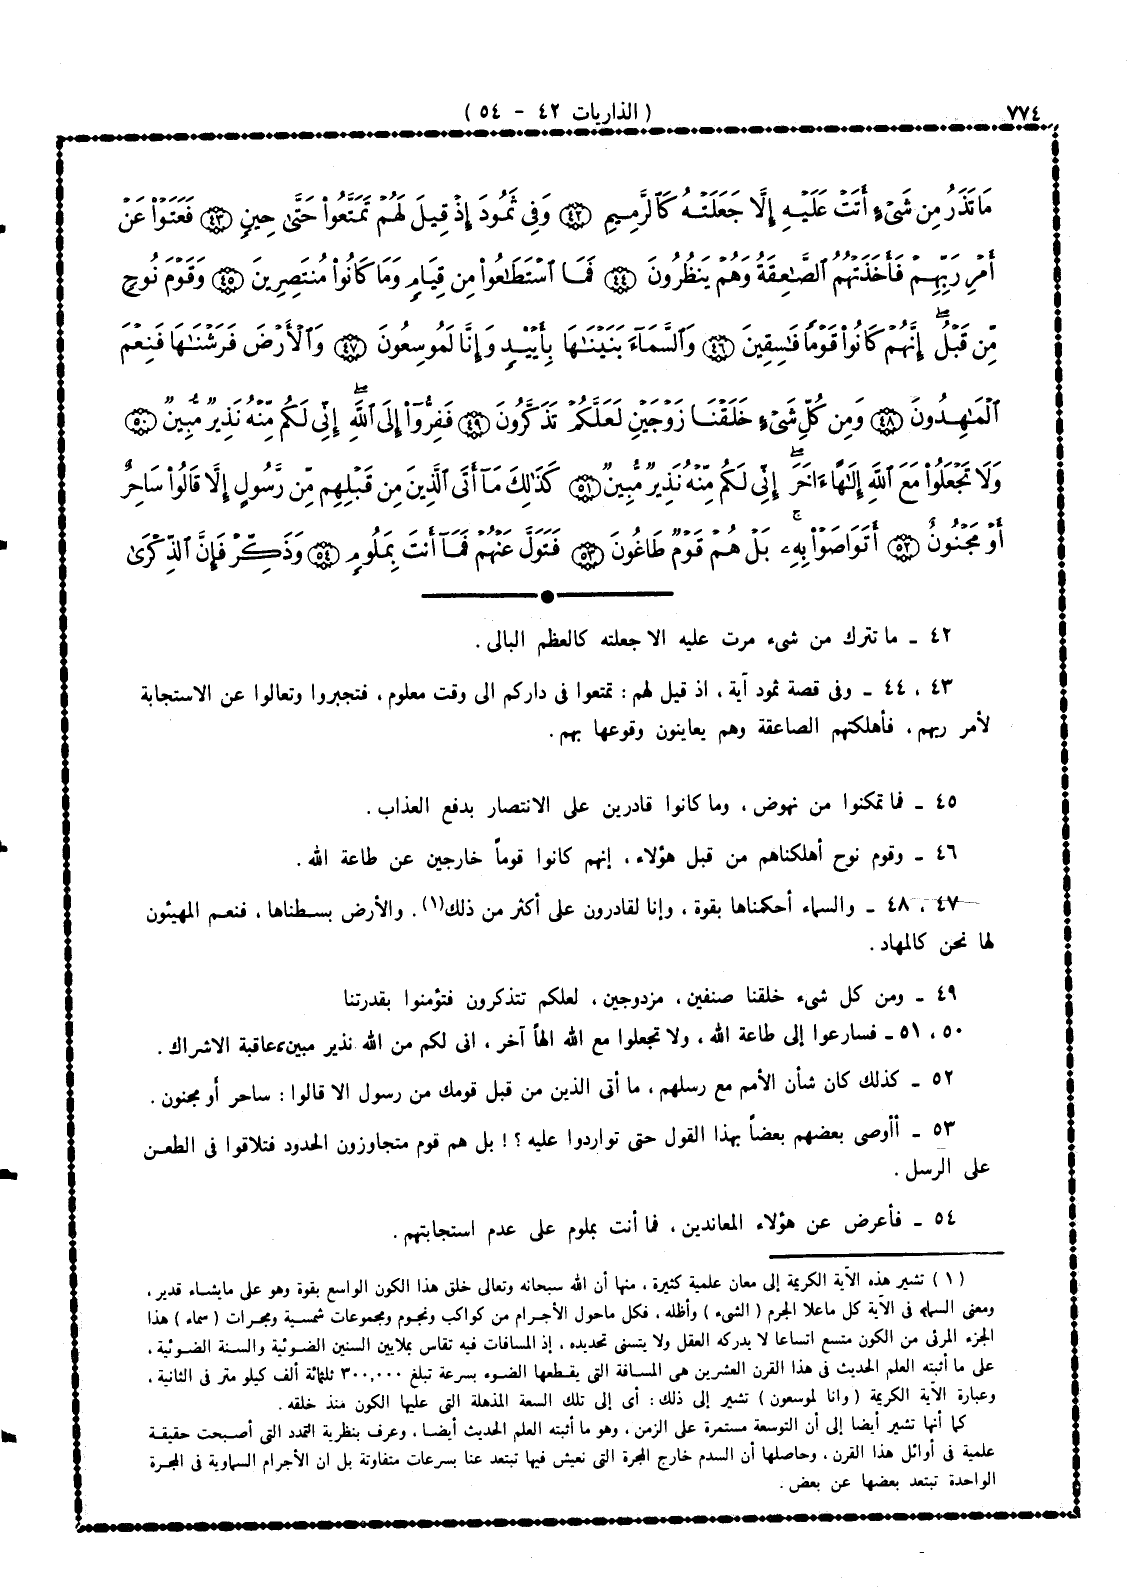 ٧٧٤
( الذاريات ٤٢ - ٥٤ )
مَا تَذَرُ مِن شَىْءٍ أَتَتْ عَلَيْهِ إِلَّا جَعَلَتْهُ كَالرَّمِيمِ ﴿٤٢﴾ وَفِى ثَمُودَ إِذْ قِيلَ لَهُمْ تَمَتَّعُوا۟ حَتَّىٰ حِينٍ ﴿٤٣﴾ فَعَتَوْا۟ عَنْ
أَمْرِ رَبِّهِمْ فَأَخَذَتْهُمُ ٱلصَّـٰعِقَةُ وَهُمْ يَنظُرُونَ ﴿٤٤﴾ فَمَا ٱسْتَطَـٰعُوا۟ مِن قِيَامٍ وَمَا كَانُوا۟ مُنتَصِرِينَ ﴿٤٥﴾ وَقَوْمَ نُوحٍ
مِّن قَبْلُ ۖ إِنَّهُمْ كَانُوا۟ قَوْمًا فَـٰسِقِينَ ﴿٤٦﴾ وَٱلسَّمَآءَ بَنَيْنَـٰهَا بِأَيْي۟دٍ وَإِنَّا لَمُوسِعُونَ ﴿٤٧﴾ وَٱلْأَرْضَ فَرَشْنَـٰهَا فَنِعْمَ
ٱلْمَـٰهِدُونَ ﴿٤٨﴾ وَمِن كُلِّ شَىْءٍ خَلَقْنَا زَوْجَيْنِ لَعَلَّكُمْ تَذَكَّرُونَ ﴿٤٩﴾ فَفِرُّوٓا۟ إِلَى ٱللَّهِ ۖ إِنِّى لَكُم مِّنْهُ نَذِيرٌ مُّبِينٌ ﴿٥٠﴾
وَلَا تَجْعَلُوا۟ مَعَ ٱللَّهِ إِلَـٰهًا ءَاخَرَ ۖ إِنِّى لَكُم مِّنْهُ نَذِيرٌ مُّبِينٌ ﴿٥١﴾ كَذَٰلِكَ مَآ أَتَى ٱلَّذِينَ مِن قَبْلِهِم مِّن رَّسُولٍ إِلَّا قَالُوا۟ سَاحِرٌ
أَوْ مَجْنُونٌ ﴿٥٢﴾ أَتَوَاصَوْا۟ بِهِۦ ۚ بَلْ هُمْ قَوْمٌ طَاغُونَ ﴿٥٣﴾ فَتَوَلَّ عَنْهُمْ فَمَآ أَنتَ بِمَلُومٍ ﴿٥٤﴾ وَذَكِّرْ فَإِنَّ ٱلذِّكْرَىٰ
٤٢ ـ ما تترك من شىء مرت عليه الا جعلته كالعظم البالى .
٤٣ ، ٤٤ ـ وفى قصة ثمود آية ، اذ قيل لهم : تمتعوا فى داركم الى وقت معلوم ، فتجبروا وتعالوا عن الاستجابة
لأمر ربهم ، فأهلكتهم الصاعقة وهم يعاينون وقوعها بهم .
٤٥ ـ فما تمكنوا من نهوض ، وما كانوا قادرين على الانتصار بدفع العذاب .
٤٦ ـ وقوم نوح أهلكناهم من قبل هؤلاء ، إنهم كانوا قوماً خارجين عن طاعة الله .
٤٧ ، ٤٨ ـ والسماء أحكمناها بقوة ، وإنا لقادرون على أكثر من ذلك(١) . والأرض بسطناها ، فنعم المهيئون
لها نحن كالمهاد .
٤٩ ـ ومن كل شىء خلقنا صنفين ، مزدوجين ، لعلكم تتذكرون فتؤمنوا بقدرتنا
٥٠ ، ٥١ ـ فسارعوا إلى طاعة الله ، ولا تجعلوا مع الله الهاً آخر ، انى لكم من الله نذير مبين عاقبة الاشراك .
٥٢ ـ كذلك كان شأن الأمم مع رسلهم ، ما أتى الذين من قبل قومك من رسول الا قالوا : ساحر أو مجنون .
٥٣ ـ أأوصى بعضهم بعضاً بهذا القول حتى تواردوا عليه ؟ ! بل هم قوم متجاوزون الحدود فتلاقوا فى الطعن
على الرسل .
٥٤ ـ فأعرض عن هؤلاء المعاندين ، فما أنت بملوم على عدم استجابتهم .
( ١ ) تشير هذه الآية الكريمة إلى معان علمية كثيرة ، منها أن الله سبحانه وتعالى خلق هذا الكون الواسع بقوة وهو على مايشاء قدير ،
ومعنى السماء فى الآية كل ماعلا الجرم ( الشىء ) وأظله ، فكل ماحول الأجرام من كواكب ونجوم ومجموعات شمسية ومجرات ( سماء ) هذا
الجزء المرئى من الكون متسع اتساعا لا يدركه العقل ولا يتسنى تحديده ، إذ المسافات فيه تقاس بملايين السنين الضوئية والسنة الضوئية ،
على ما أثبته العلم الحديث فى هذا القرن العشرين هى المسافة التى يقطعها الضوء بسرعة تبلغ ٣٠٠,٠٠٠ ثلثمائة ألف كيلو متر فى الثانية ،
وعبارة الآية الكريمة ( وانا لموسعون ) تشير إلى ذلك : أى إلى تلك السعة المذهلة التى عليها الكون منذ خلقه .
كما أنها تشير أيضا إلى أن التوسعة مستمرة على الزمن ، وهو ما أثبته العلم الحديث أيضا ، وعرف بنظرية التمدد التى أصبحت حقيقة
علمية فى أوائل هذا القرن ، وحاصلها أن السدم خارج المجرة التى نعيش فيها تبتعد عنا بسرعات متفاوتة بل ان الأجرام السماوية فى المجرة
الواحدة تبتعد بعضها عن بعض .